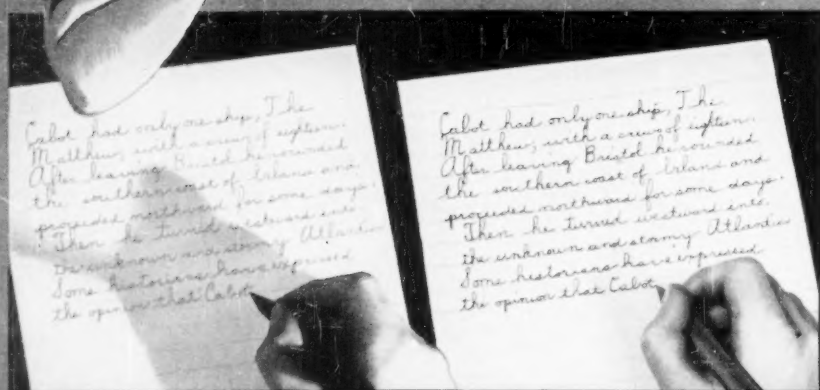 Cabot had only one ship, The
Matthew, with a crew of eighteen.
After leaving Bristol he rounded
the southern coast of Ireland and
proceeded northward for some days.
Then he turned westward into
the unknown and stormy Atlantic
Some historians have expressed
the opinion that Cabot
Cabot had only one ship, The
Matthew, with a crew of eighteen.
After leaving Bristol he rounded
the southern coast of Ireland and
proceeded northward for some days.
Then he turned westward into
the unknown and stormy Atlantic
Some historians have expressed
the opinion that Cabot